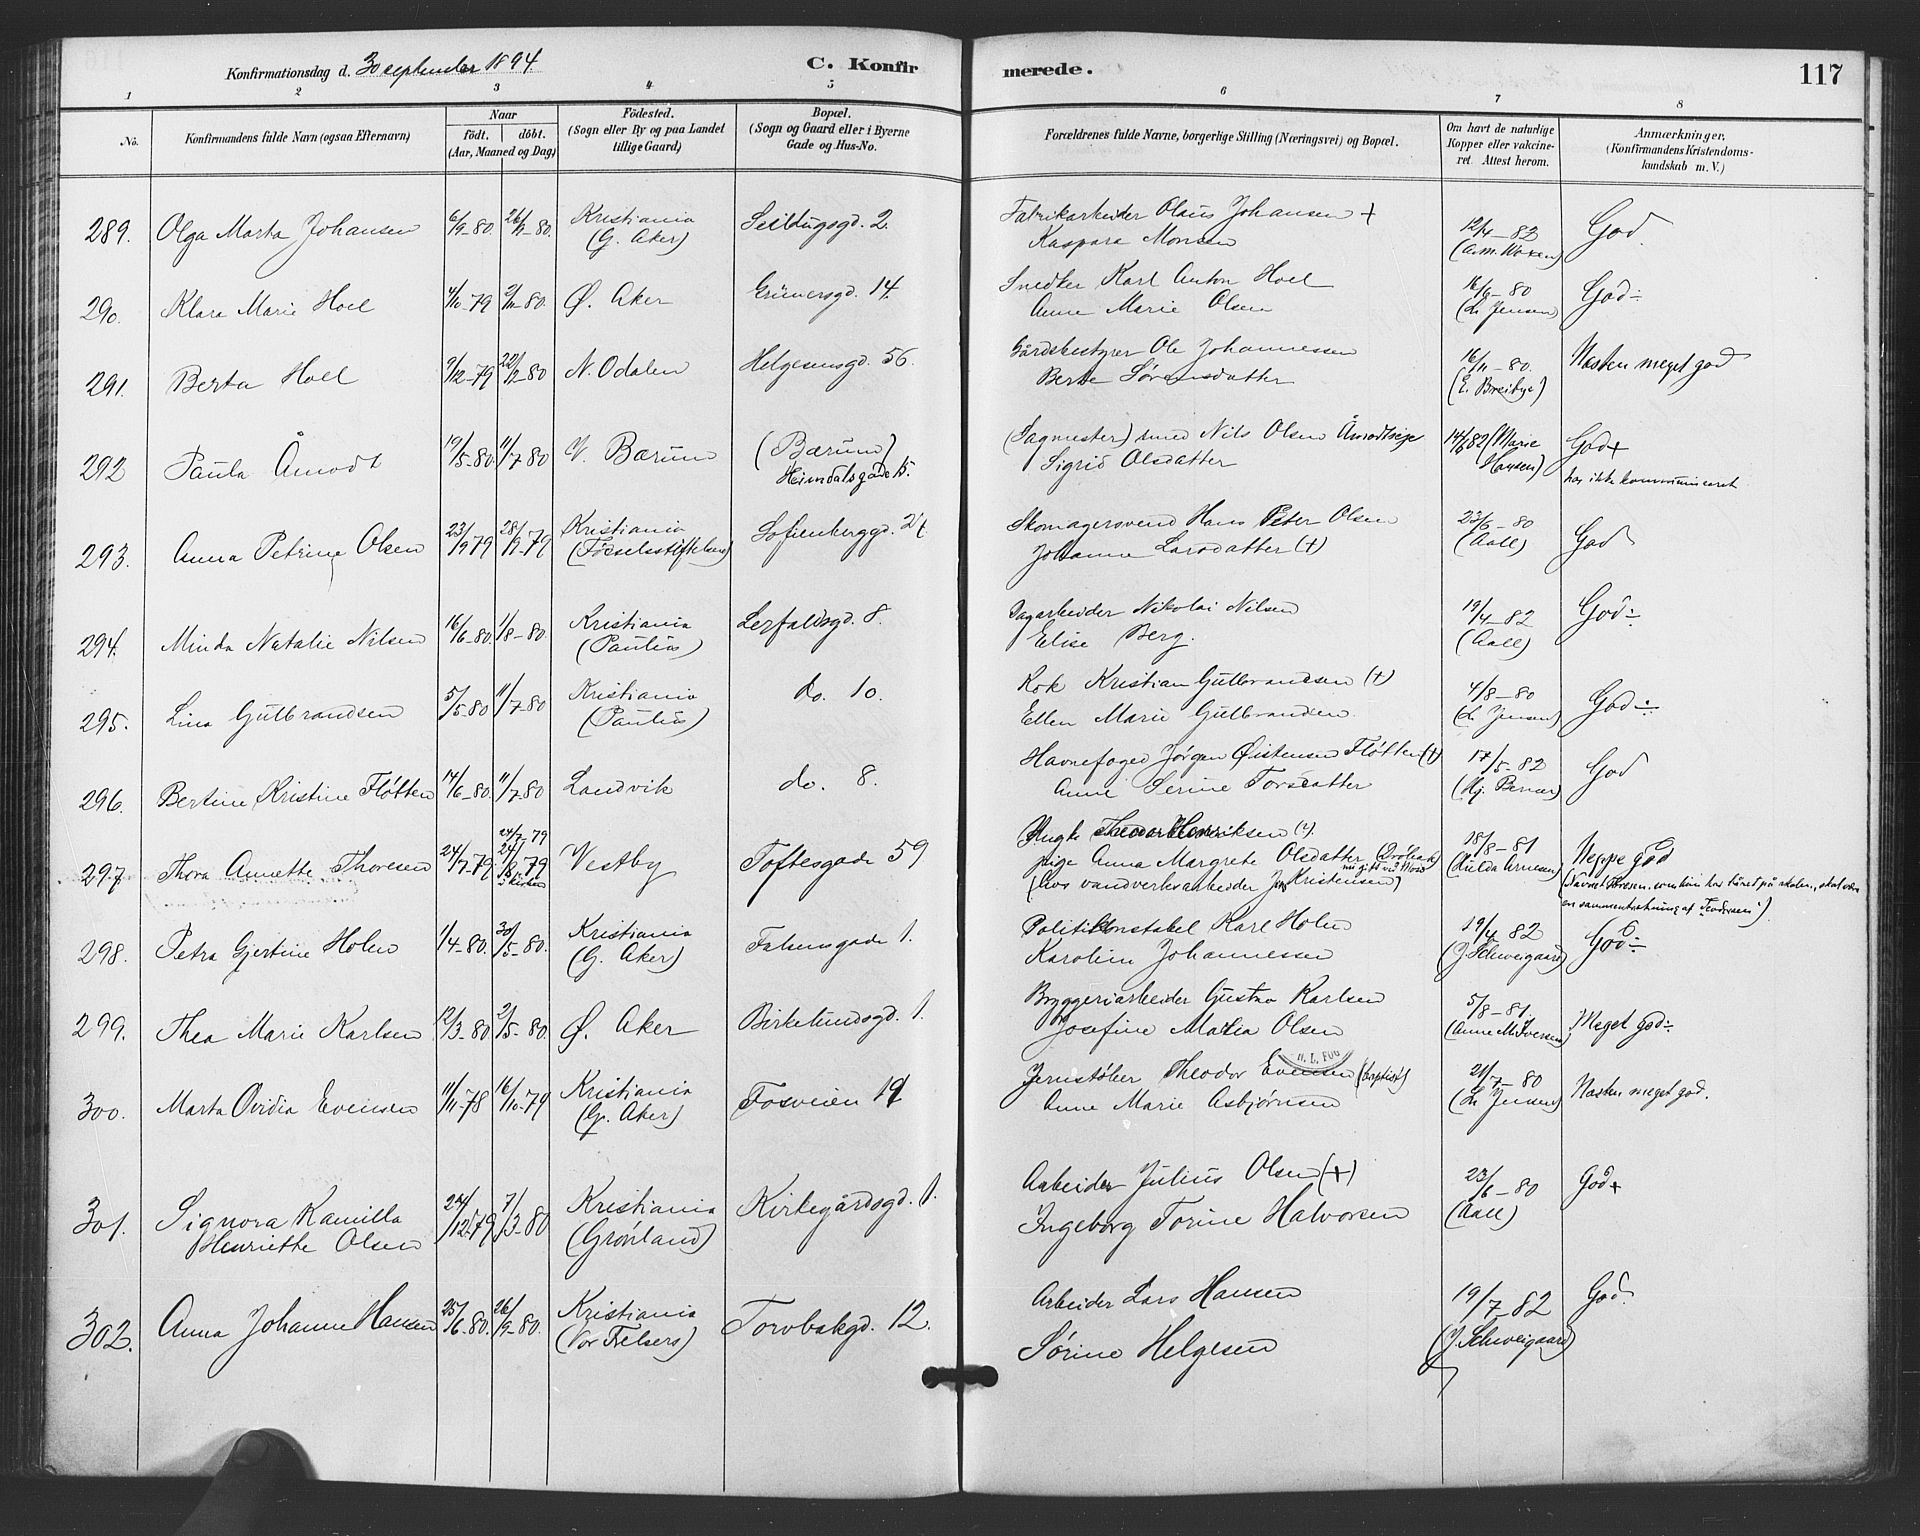 Konfirmationsdag d. 30 september 1894 C. Konfirmerede. 117
1 2 3 4 5 6 7 8
No. Konfirmandens fulde Navn (ogsaa Efternavn) Naar födt. döbt. (Aar, Maaned og Dag) Födested. (Sogn eller By og paa Landet tillige Gaard) Bopæl. (Sogn og Gaard eller i Byerne Gade og Hus-No. Forældrenes fulde Navne, borgerlige Stilling (Næringsvei) og Bopæl. Om havt de naturlige Kopper eller vakcineret. Attest herom. Anmærkninger, (Konfirmandens Kristendomskundskab m. V.)
289. Olga Marta Johansen 6/9-80 26/9-80 Kristiania (G. Aker) Seildugsgd. 2. Fabrikarbeider Olaus Johansen + 12/4-82 God.
Kaspara Monsen
290. Klara Marie Hoel Ø. Aker Grünersgd. 14. Snedker Karl Anton Hoel 16/9-80 God÷
Anne Marie Olsen (L. Jensen)
291. Berta Hoel 9/12-79 22/2-80 N. Odalen Helgesensgd. 56. Gårdsbestyrer Ole Johannessen 16/11-80. Næsten meget god
Berte Sørensdatter (E. Breibye)
292 Paula Åmodt 19/5-80 11/7-80 V. Bærum (Bærum) Heimdalsgade 15. (Sagmester) smed Nils Olsen Åmodtseje (Marie Hansen) God+
Sigrid Olsdatter har ikke kommuniceret
293. Anna Petrine Olsen 23/9 79 28/9-79 Kristiania (Fødselsstiftelsen) Sofienberggd. Skomagersvend Hans Peter Olsen 23/6-80 God
Johanne Larsdatter (+) (Aall)
294. Minda Natalie Nilsen 16/6-80 1/8-80 Kristiania (Paulus) Lerfaldsgd. 8. Dagarbeider Nikolai Nilsen 19/4-82 God÷
Elise Berg. (Aall)
295. Lina Gulbrandsen 5/5-80 11/7-80 Kristiania (Paulus) do. 10. Kok Kristian Gulbrandsen (+) 4/8-80 God÷
Ellen Marie Gulbrandsen (L. Jensen)
296. Bertine Kristine Fløtten 14/6-80. 11/7-80 Landvik do. 8. Havnefoged Jørgen Øistensen Fløtten (+) 17/5-82 God
Anne Serine Torsdatter
297. Thora Annette Thoresen 24/7-79 24/7-79 Vestby Toftesgade 59 Theodor Henriksen 18/8-81 Neppe god
pige Anna Margrete Olsdatter (Hulda Arnesen)
(hos vandverksarbeider Kristensen) en sammentrekning af
298. Petra Gjertine Holm 1/4-80. 30/5-80. Kristiania (G. Aker) Falsensgade 1. Politikonstabel Karl Holm 19/4 82 God÷
Karoline Johannessen (J. Schweigaard)
299. Thea Marie Karlsen 12/3-80 2/5-80 Ø. Aker Birkelundsgd. 1. Bryggeriarbeider Gustav Karlsen 5/8-81. Meget god÷
Josefine Maria Olsen (Anne M. Iversen)
300. Marta Ovidia Evensen 11/11-78 16/10-79 Kristiania (G. Aker) Fosveien 14 Jernstøber Theodor Evensen (baptist) 21/7-80 Næsten meget god.
Anne Marie Asbjørnsen (L. Jensen)
301. Signora Kamilla Henriette Olsen 24/12-79 7/3-80 Kristiania (Grønland) Kirkegårdsgd. 1. Arbeider Julius Olsen (+) 23/6-80 God+
Ingeborg Torine Halvorsen (Aall)
302. Anna Johanne Hansen 25/6-80. 26/9-80. Kristiania (Vor Frelsers) Torvbakgd. 12. Arbeider Lars Hansen 19/7-82 God.
Sørine Helgesen (J. Schweigaard)